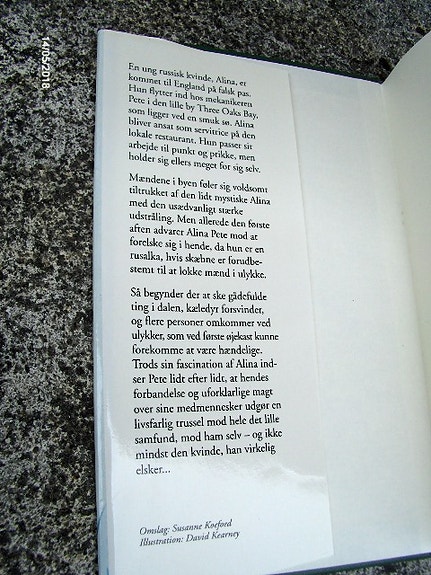 En ung russisk kvinde, Alina, er
kommet til England på falsk pas.
Hun flytter ind hos mekanikeren
Pete i den lille by Three Oaks Bay,
som ligger ved en smuk sø. Alina
bliver ansat som servitrice på den
lokale restaurant. Hun passer sit
arbejde til punkt og prikke, men
holder sig ellers meget for sig selv.
Mændene i byen føler sig voldsomt
tiltrukket af den lidt mystiske Alina
med den usædvanligt stærke
udstråling. Men allerede den første
aften advarer Alina Pete mod at
forelske sig i hende, da hun er en
rusalka, hvis skæbne er forudbe-
stemt til at lokke mænd i ulykke.
Så begynder der at ske gådefulde
ting i dalen, kæledyr forsvinder,
og flere personer omkommer ved
ulykker, som ved første øjekast kunne
forekomme at være hændelige.
Trods sin fascination af Alina ind-
ser Pete lidt efter lidt, at hendes
forbandelse og uforklarlige magt
over sine medmennesker udgør en
livsfarlig trussel mod hele det lille
samfund, mod ham selv – og ikke
mindst den kvinde, han virkelig
elsker...
Omslag: Susanne Koefoed
Illustration: David Kearney
14/05/2018